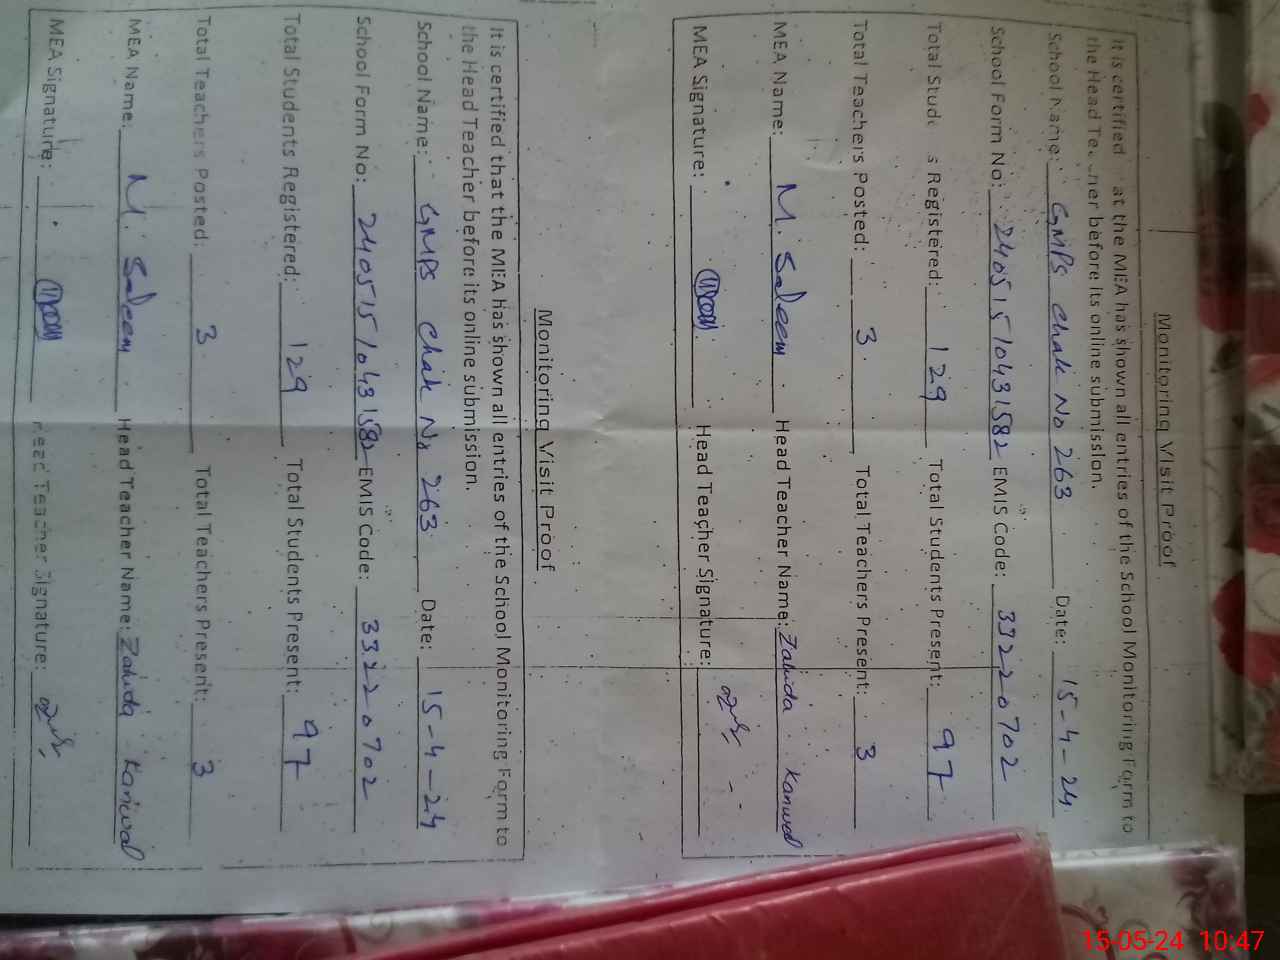 Monitoring Visit Proof
It is certified at the MEA has shown all entries of the School Monitoring Form to
the Head before its online submission.
School Name: GMPS Chak No 263 Date: 15-4-24
School Form No: 240515/10431582 EMIS Code: 33220702
Total Registered: 129 Total Students Present: 97
Total Teachers Posted: 3 Total Teachers Present: 3
MEA Name: M. Saleem Head Teacher Name: Zahida Kanwal
MEA Signature: Head Teacher Signature:
Monitoring Visit Proof
It is certified that the MEA has shown all entries of the School Monitoring Form to
the Head Teacher before its online submission.
School Name: GMPS Chak No 263 Date: 15-4-24
School Form No: 240515/10431582 EMIS Code: 33220702
Total Students Registered: 129 Total Students Present: 97
Total Teachers Posted: 3 Total Teachers Present: 3
MEA Name: M. Saleem Head Teacher Name: Zahida Kanwal
MEA Signature: Head Teacher Signature:
15-05-24 10:47